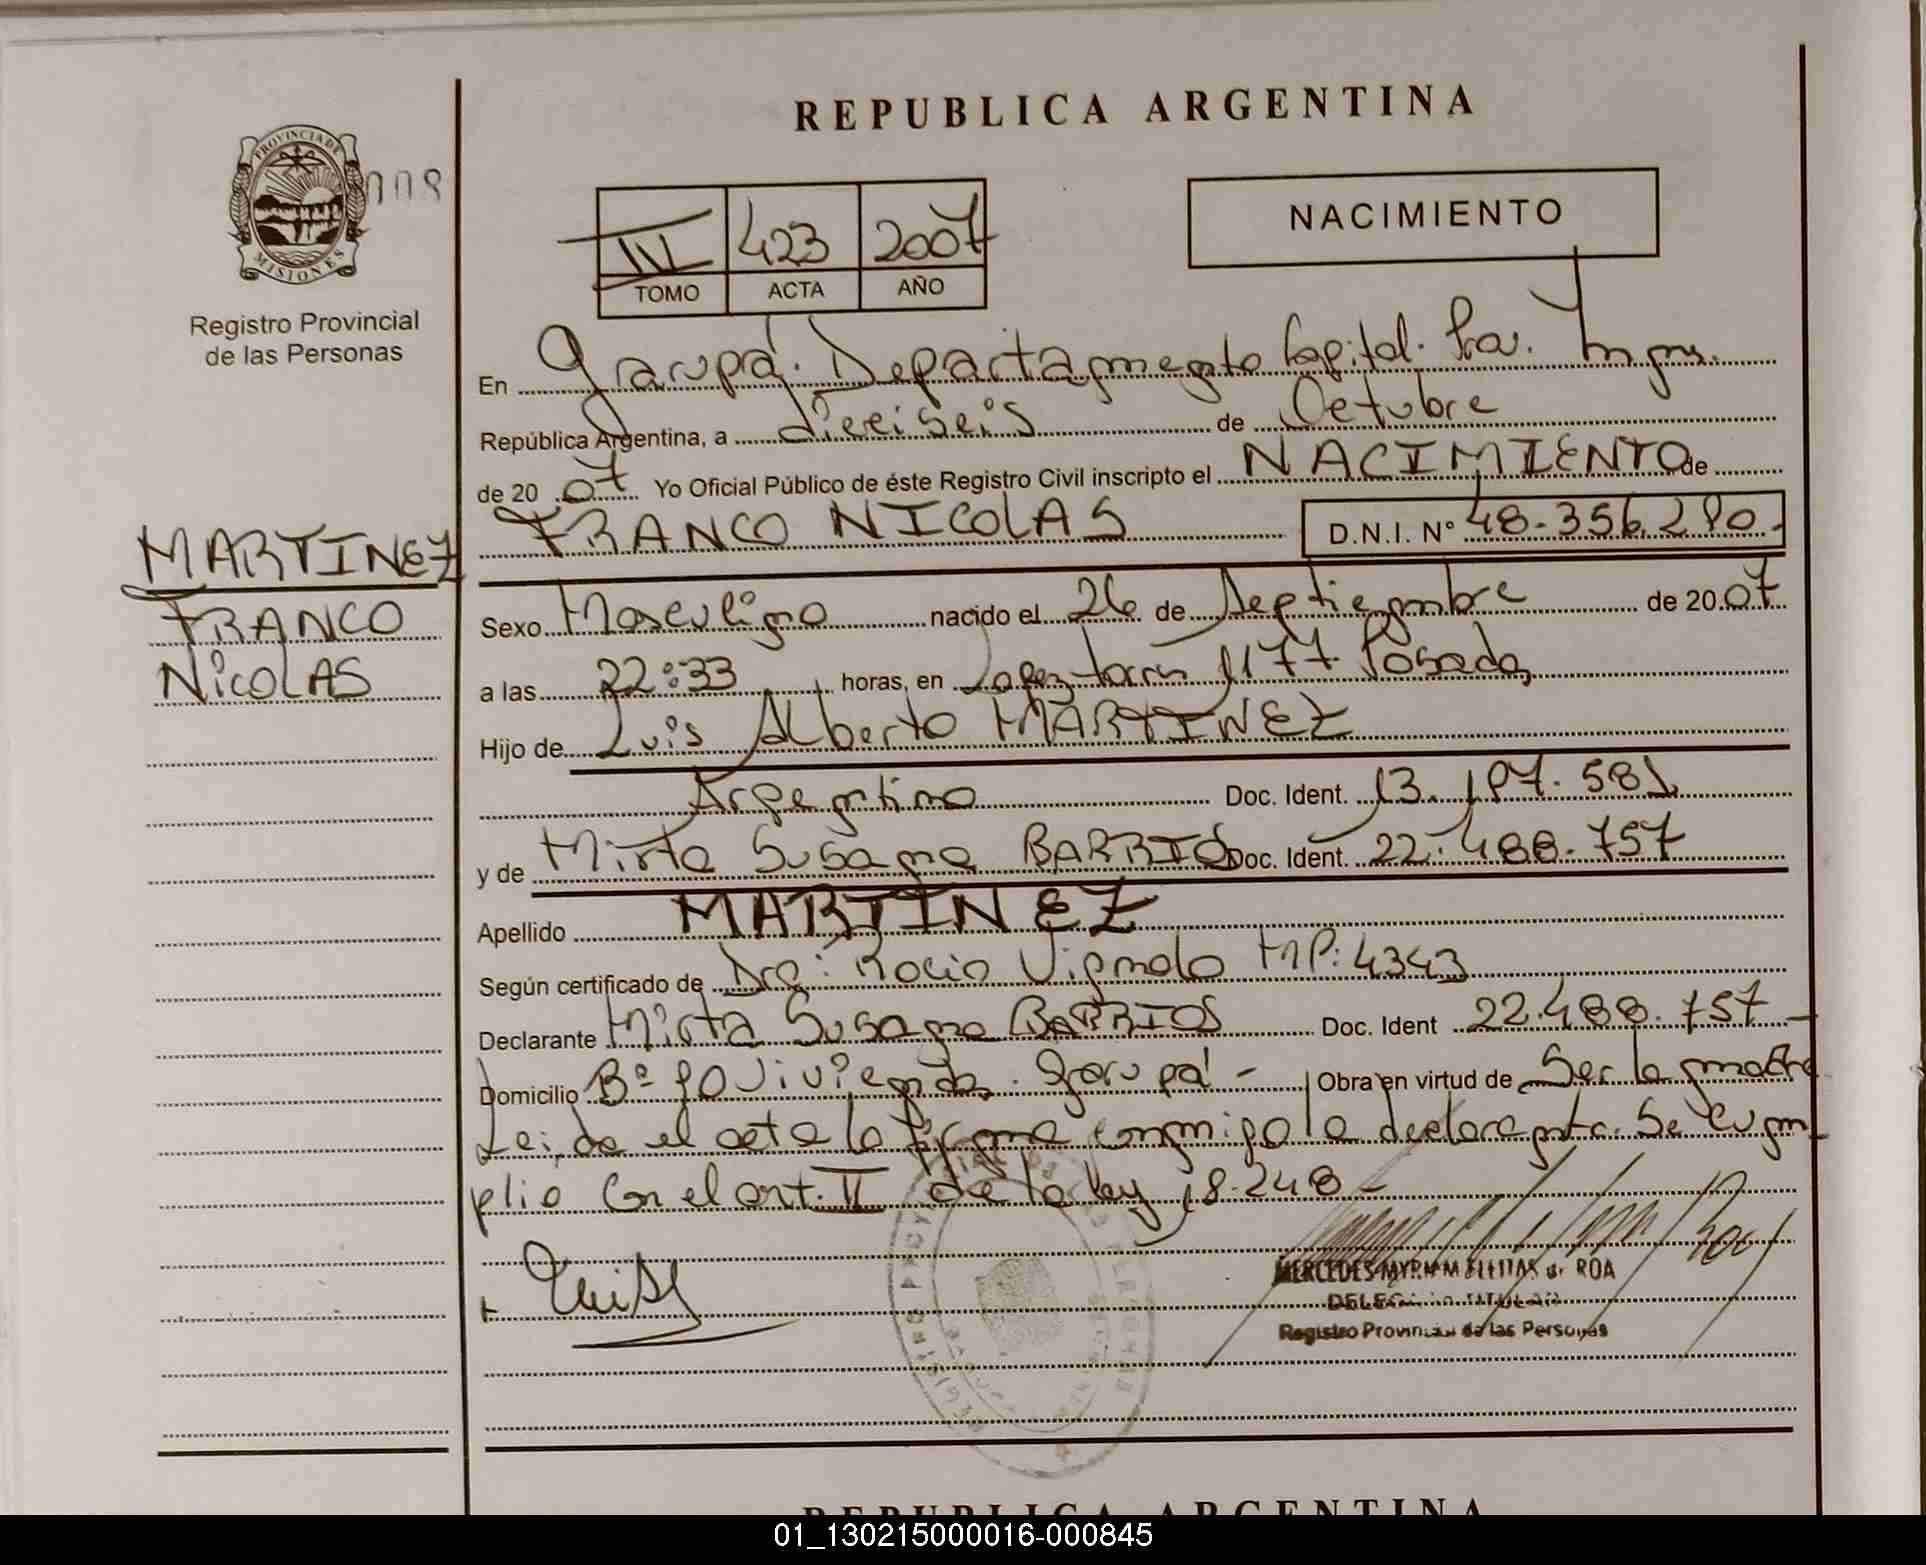 REPUBLICA ARGENTINA
PROVINCIA DE MISIONES
008
Registro Provincial
de las Personas
III 423 2007
TOMO ACTA AÑO
NACIMIENTO
En Garupá. Departamento Capital. Pcia. Mnes.
República Argentina, a dieciseis de Octubre
de 2007 Yo Oficial Público de éste Registro Civil inscripto el NACIMIENTO de
FRANCO NICOLAS D.N.I. Nº 48.356.290.
MARTINEZ
FRANCO
NICOLAS
Sexo Masculino nacido el 26 de Septiembre de 2007
a las 22:33 horas, en Lopez torres 1177. Posadas
Hijo de Luis Alberto MARTINEZ
Argentino Doc. Ident. 13.197.581
y de Mirta Susana BARRIOS Doc. Ident. 22.488.757
Apellido MARTINEZ
Según certificado de Dra: Rocio MP: 4343
Declarante Mirta Susana BARRIOS Doc. Ident 22.488.757
Domicilio Bº 90 Viviendas. Garupá - Obra en virtud de Ser la madre
Leida el acta la firma conmigo la declarante. Se cum
plio con el art. II de la ley 18.248 -
MERCEDES MYRIAM de ROA
DELEGADA TITULAR
Registro Provincial de las Personas
REPUBLICA ARGENTINA
01_130215000016-000845